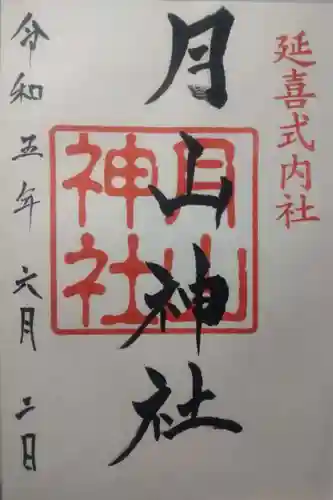 延喜式内社
月山神社
月山神社
令和五年 六月 二日